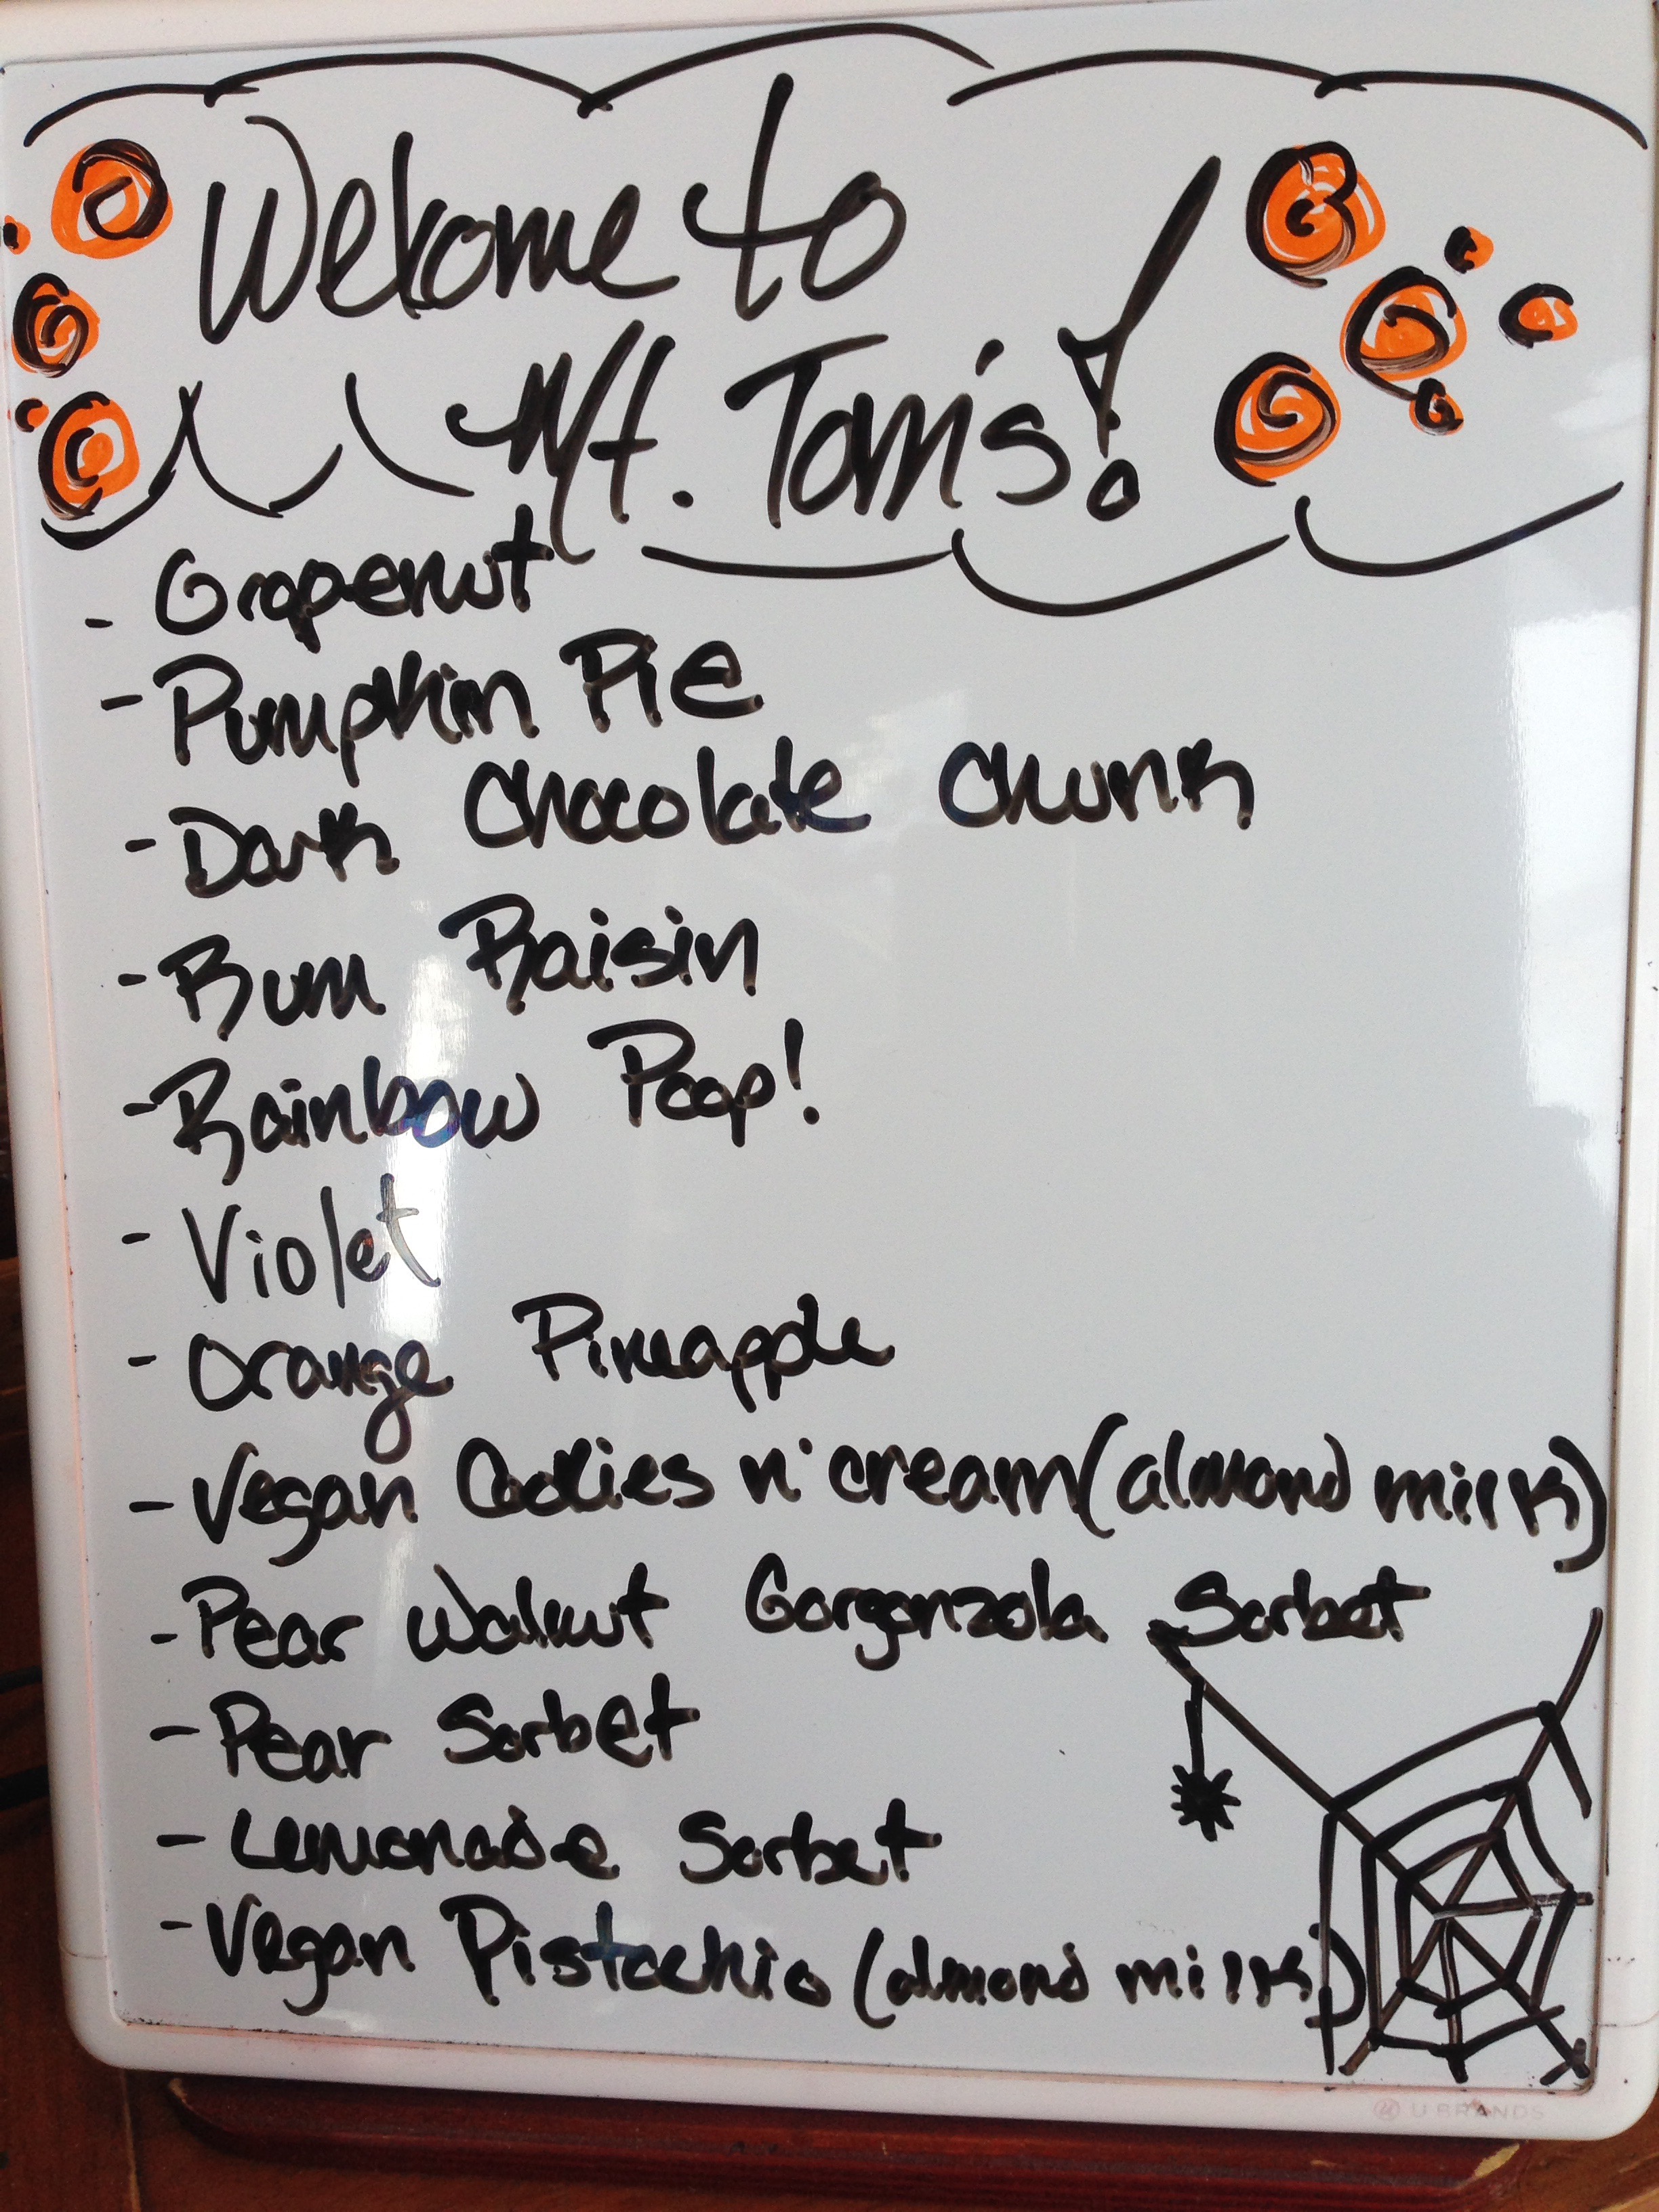 Welcome to
Mt. Tom's!
- Grapenut
- Pumpkin Pie
- Dark Chocolate Chunk
- Rum Raisin
- Rainbow Poop!
- Violet
- Orange Pineapple
- Vegan Cookies n' cream (almond milk)
- Pear Walnut Gorgonzola Sorbet
- Pear Sorbet
- Lemonade Sorbet
- Vegan Pistachio (almond milk)
U BRANDS